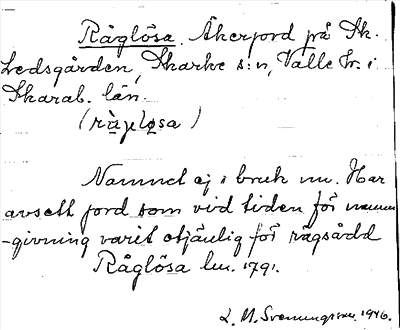 Råglösa. Åkerjord på Sk.
Ledsgården, Skarke s:n, Valle hr. i
Skarab. län.
(rå̀γlø̀sa)
Namnet ej i bruk nu. Har
avsett jord som vid tiden för namn
-givning varit otjänlig för rågsådd
Råglösa lm. 1791.
L. M. Svenungsson. 1946.